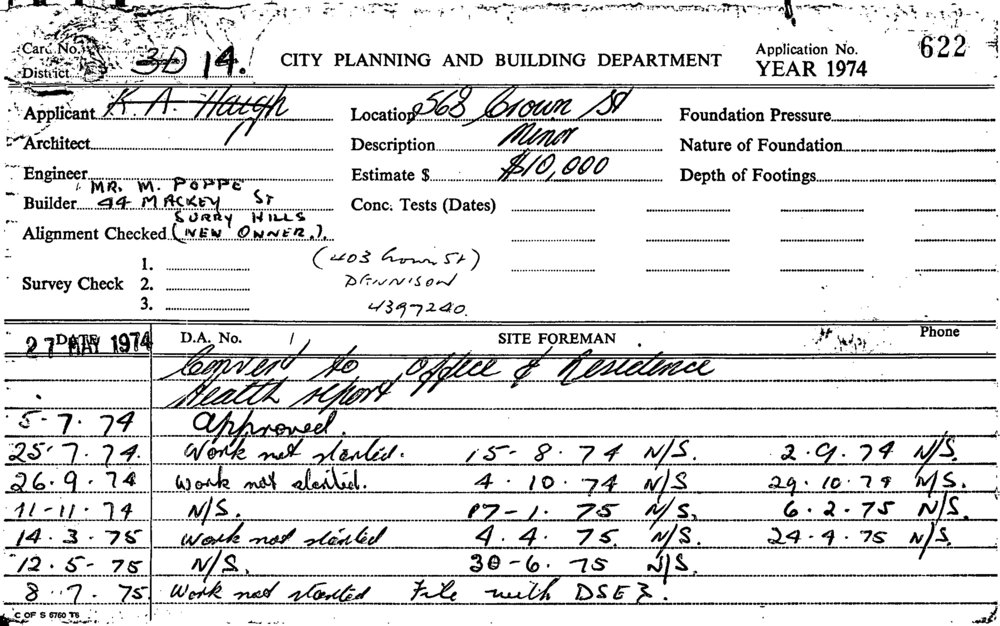 Card No. 3D 14. CITY PLANNING AND BUILDING DEPARTMENT Application No. 622
District YEAR 1974
Applicant K. A. Haugh Location 568 Crown St Foundation Pressure
Architect Description Minor Nature of Foundation
Engineer Estimate $ $10,000 Depth of Footings
MR. M. POPPE
Builder 44 MACKEY ST Conc. Tests (Dates)
SURRY HILLS
Alignment Checked (NEW OWNER.).
1. (403 Crown St)
Survey Check 2. DENNISON
3. 4397240.
27 MAY 1974 DATE D.A. No. SITE FOREMAN Phone
Convert to Office & Residence
Health report
5-7.74 Approved.
25.7.74. Work not started. 15-8.74 N/S. 2.9.74 N/S.
26.9.74 work not started. 4.10.74 N/S 29.10.74 N/S.
11-11.74 N/S. 17-1.75 N/S. 6.2.75 N/S.
14.3.75 work not started 4.4.75. N/S. 24.4.75 N/S.
12.5-75 N/S. 30-6.75 N/S.
8.7.75. Work not started File with DSE3.
C OF S 6760 TS